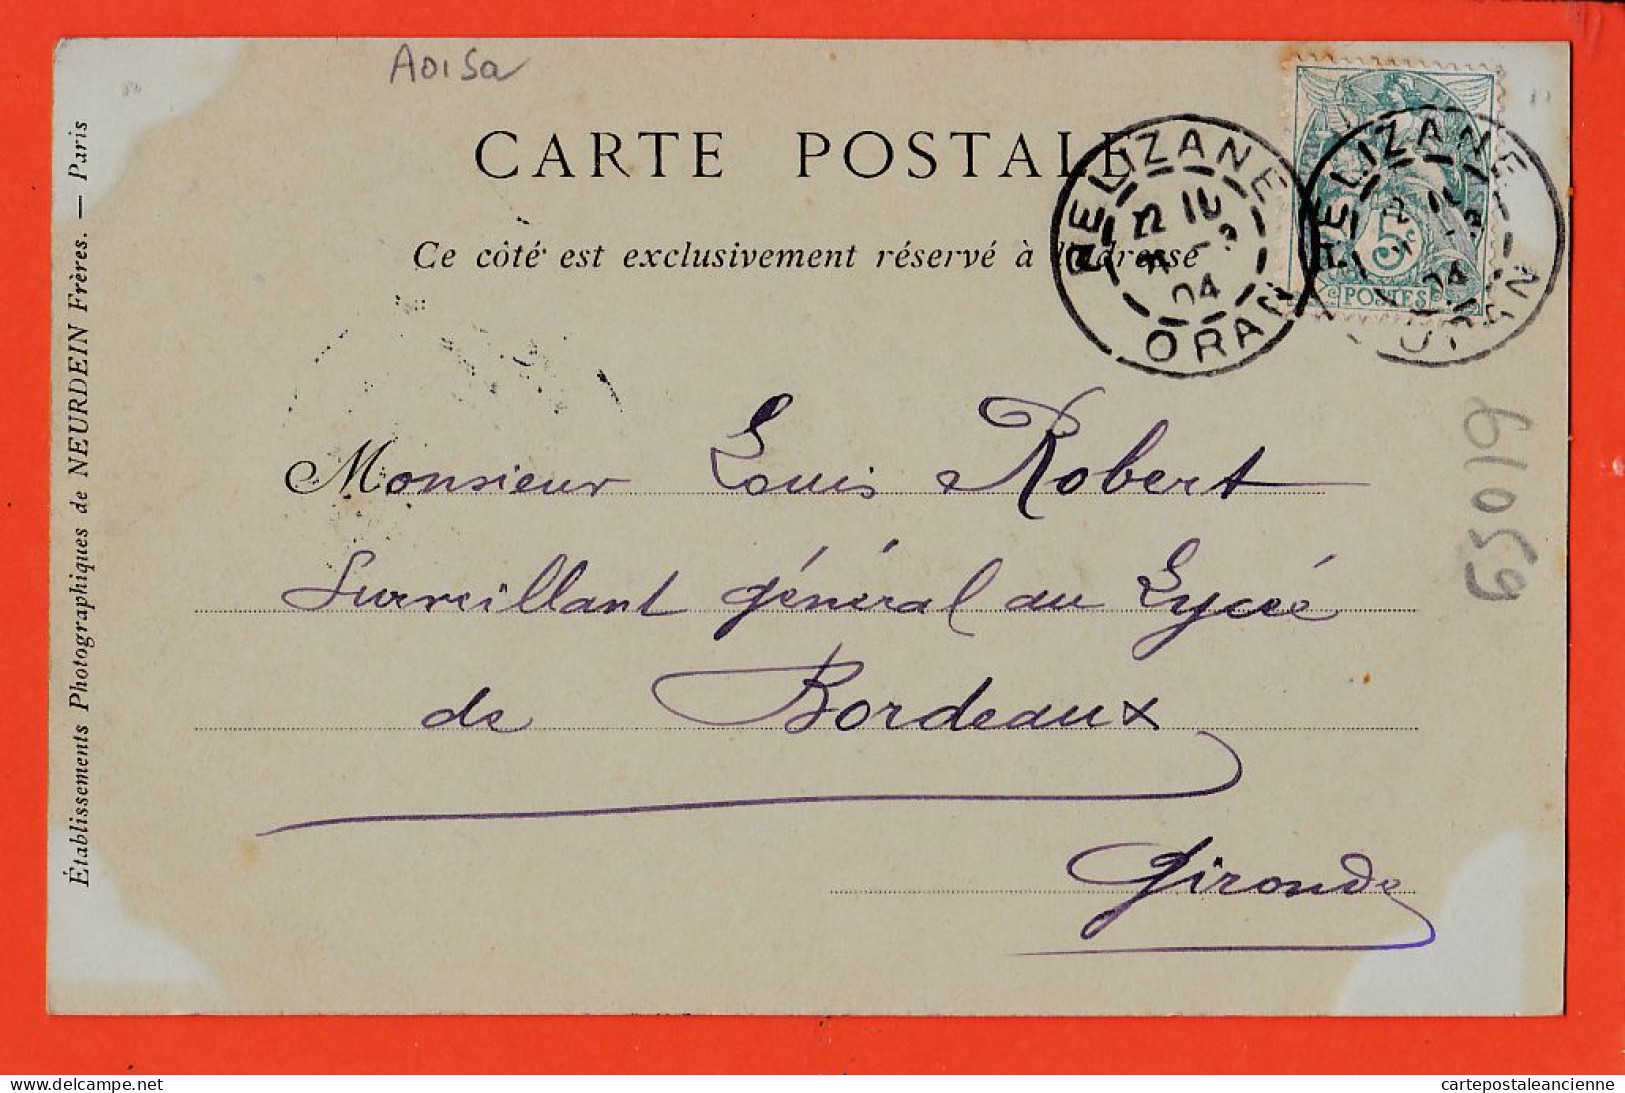 Aoisa
CARTE POSTALE
Ce côté est exclusivement réservé à l'adresse
RELIZANE
ORAN
04
RELIZANE
ORAN
04
5
POSTES
Monsieur Louis Robert
Surveillant général au Lycée
de Bordeaux
Gironde
65019
Établissements Photographiques de NEURDEIN Frères. — Paris
Delcampe.net
cartepostaleancienne